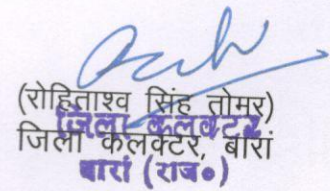 (रोहिताश्व सिंह तोमर)
जिला कलक्टर
जिला कलेक्टर, बारां
बारां (राज०)